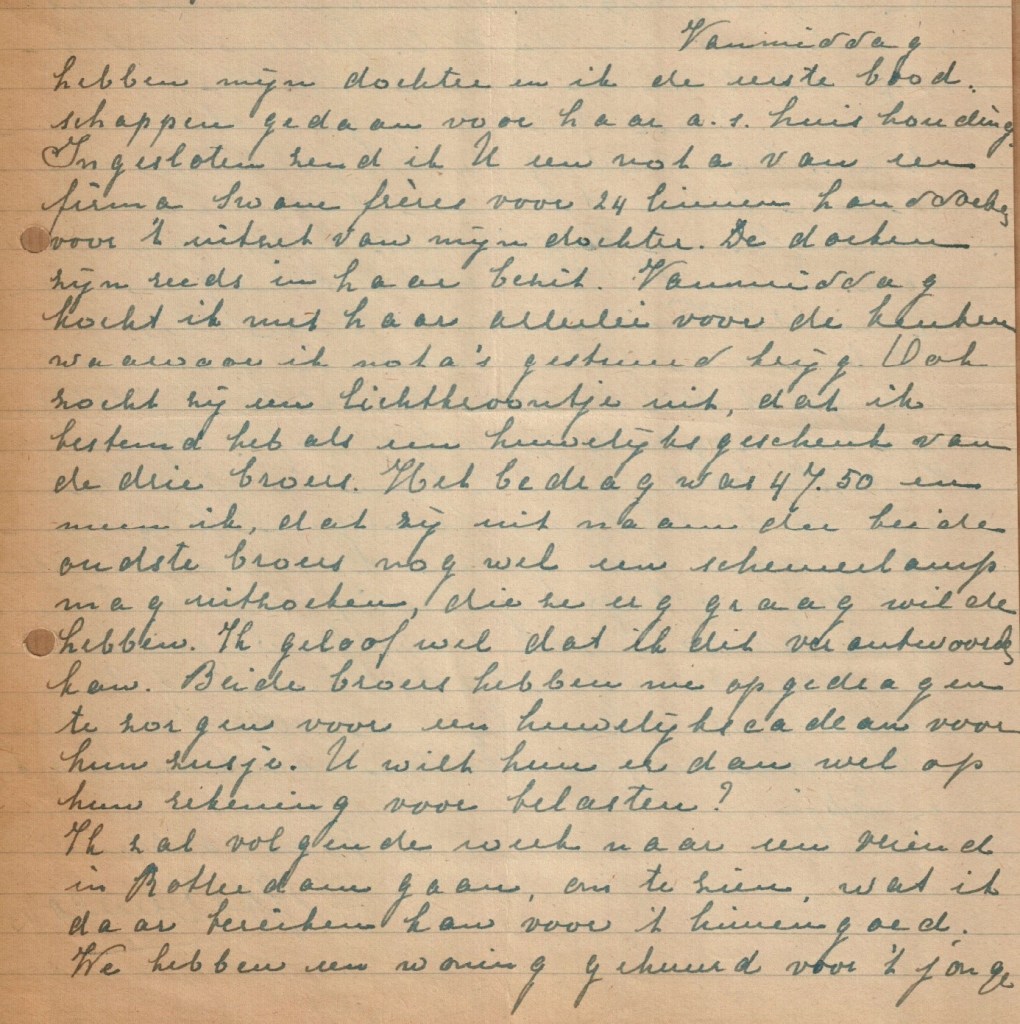 Vanmiddag
hebben mijn dochter en ik de eerste bood-
schappen gedaan voor haar a.s. huishouding.
Ingesloten zend ik U een nota van een
firma frères voor 24 linnen handdoeken
voor 't uitzet van mijn dochter. De doeken
zijn reeds in haar bezit. Vanmiddag
kocht ik met haar allerlei voor de keuken
waarvoor ik nota's gestuurd krijg. Ook
zocht zij een lichtkroontje uit, dat ik
bestemd heb als een huwelijksgeschenk van
de drie broers. Het bedrag was 47.50 en
meen ik, dat zij uit naam der beide
oudste broers nog wel een schemerlamp
mag uitzoeken, die ze erg graag wilde
hebben. Ik geloof wel dat ik dit verantwoorden
kan. Beide broers hebben me opgedragen
te zorgen voor een huwelijkscadeau voor
hun zusje. U wilt hun er dan wel op
hun rekening voor belasten?
Ik zal volgende week naar een vriend
in Rotterdam gaan, om te zien, wat ik
daar bereiken kan voor 't linnengoed.
We hebben een woning gehuurd voor 't jonge